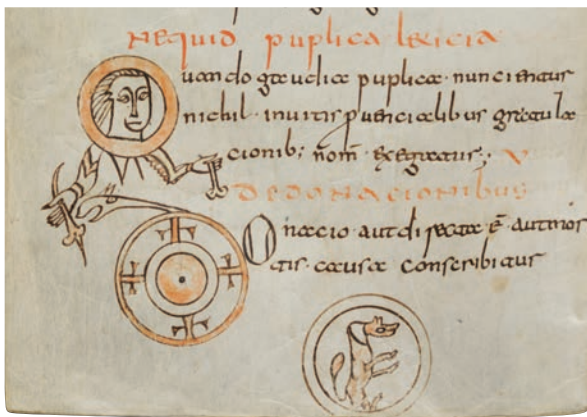 NEquid puplica leticia
Quando gaudia puplica · nunciantur
nichil · inuitis puincialibus gratula
cionib; nom exegatur ; V
DE DONACIONIBUS
DOnacio aut directa ē · aut mor
tis · causa conscribitur